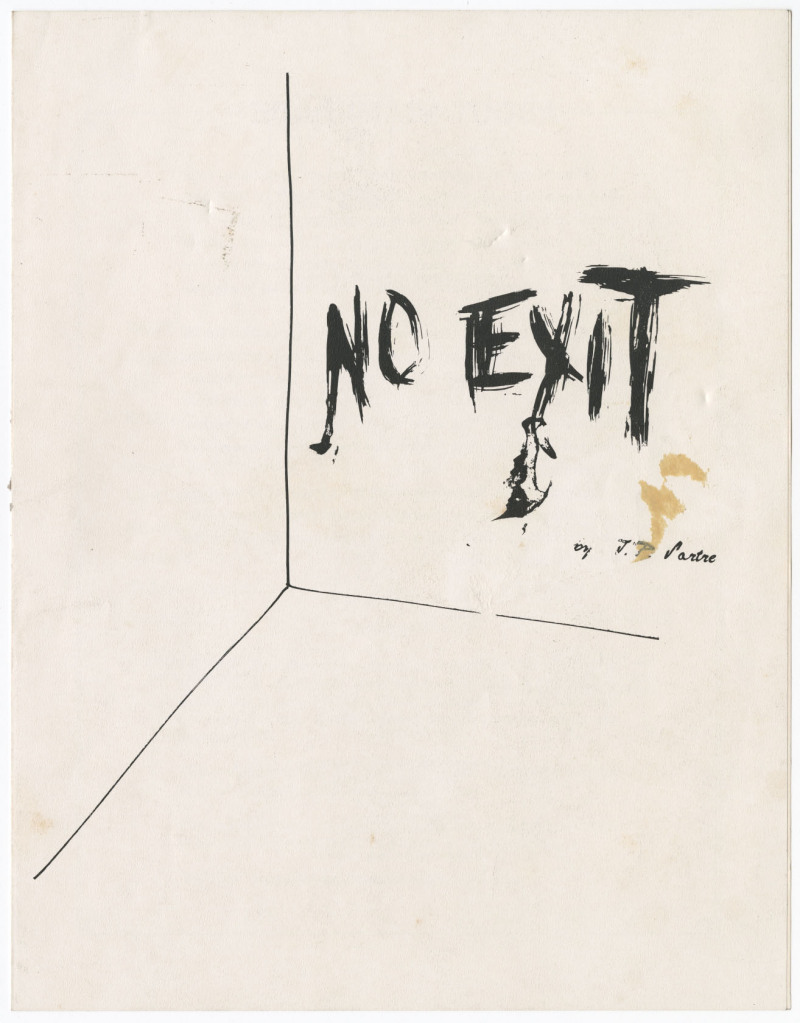 NO EXIT
by J.P. Sartre